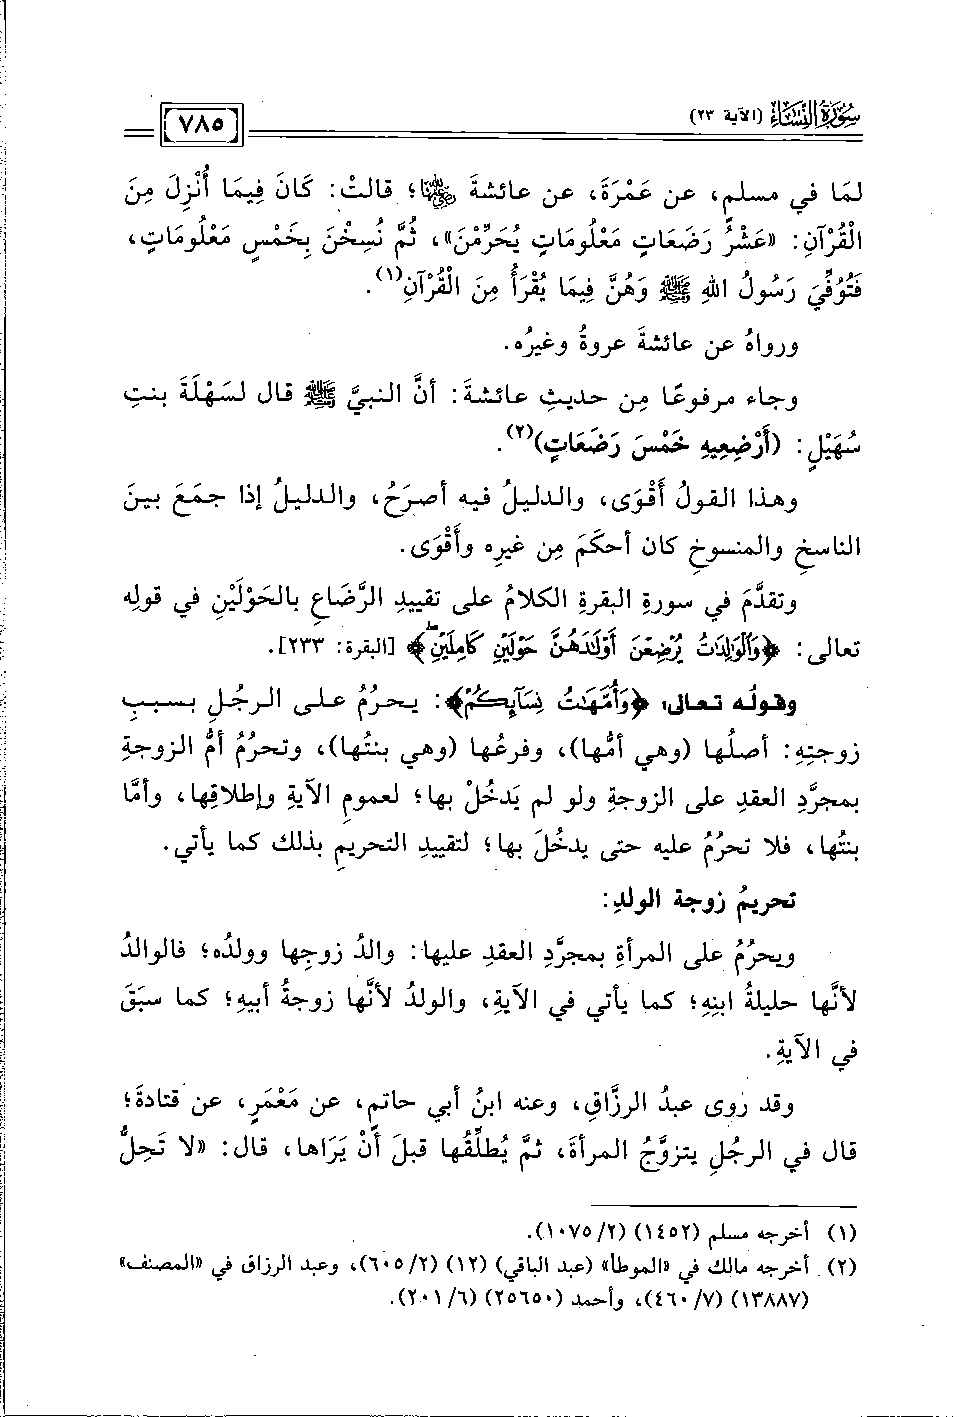 سُورَةُ النِّسَاءِ (الآية ٢٣)
٧٨٥
لمَا في مسلمٍ، عن عَمْرَةَ، عن عائشةَ ﵂؛ قالتْ: كَانَ فِيمَا أُنْزِلَ مِنَ
الْقُرْآنِ: «عَشْرُ رَضَعَاتٍ مَعْلُومَاتٍ يُحَرِّمْنَ»، ثُمَّ نُسِخْنَ بِخَمْسٍ مَعْلُومَاتٍ،
فَتُوُفِّيَ رَسُولُ اللهِ ﷺ وَهُنَّ فِيمَا يُقْرَأُ مِنَ الْقُرْآنِ(١).
ورواهُ عن عائشةَ عروةُ وغيرُه.
وجاء مرفوعًا مِن حديثِ عائشةَ: أنَّ النبيَّ ﷺ قال لسَهْلَةَ بنتِ
سُهَيْلٍ: (أَرْضِعِيهِ خَمْسَ رَضَعَاتٍ)(٢).
وهذا القولُ أَقْوَى، والدليلُ فيه أصرَحُ، والدليلُ إذا جمَعَ بينَ
الناسخِ والمنسوخِ كان أحكَمَ مِن غيرِه وأَقْوَى.
وتقدَّمَ في سورةِ البقرةِ الكلامُ على تقييدِ الرَّضَاعِ بالحَوْلَيْنِ في قولِه
تعالى: ﴿وَٱلْوَٰلِدَٰتُ يُرْضِعْنَ أَوْلَٰدَهُنَّ حَوْلَيْنِ كَامِلَيْنِۖ﴾ [البقرة: ٢٣٣].
وقولُه تعالى: ﴿وَأُمَّهَٰتُ نِسَآئِكُمْ﴾: يحرُمُ على الرجُلِ بسببِ
زوجتِهِ: أصلُها (وهي أمُّها)، وفرعُها (وهي بنتُها)، وتحرُمُ أمُّ الزوجةِ
بمجرَّدِ العقدِ على الزوجةِ ولو لم يَدخُلْ بها؛ لعمومِ الآيةِ وإطلاقِها، وأمَّا
بنتُها، فلا تحرُمُ عليه حتى يدخُلَ بها؛ لتقييدِ التحريمِ بذلك كما يأتي.
تحريمُ زوجة الولدِ:
ويحرُمُ على المرأةِ بمجرَّدِ العقدِ عليها: والدُ زوجِها وولدُه؛ فالوالدُ
لأنَّها حليلةُ ابنِهِ؛ كما يأتي في الآيةِ، والولدُ لأنَّها زوجةُ أبيهِ؛ كما سبَقَ
في الآيةِ.
وقد روى عبدُ الرزَّاقِ، وعنه ابنُ أبي حاتمٍ، عن مَعْمَرٍ، عن قتادةَ؛
قال في الرجُلِ يتزوَّجُ المرأةَ، ثمَّ يُطلِّقُها قبلَ أَنْ يَرَاها، قال: «لا تَحِلُّ
(١) أخرجه مسلم (١٤٥٢) (٢/ ١٠٧٥).
(٢) أخرجه مالك في «الموطأ» (عبد الباقي) (١٢) (٢/ ٦٠٥)، وعبد الرزاق في «المصنف»
(١٣٨٨٧) (٧/ ٤٦٠)، وأحمد (٢٥٦٥٠) (٦/ ٢٠١).